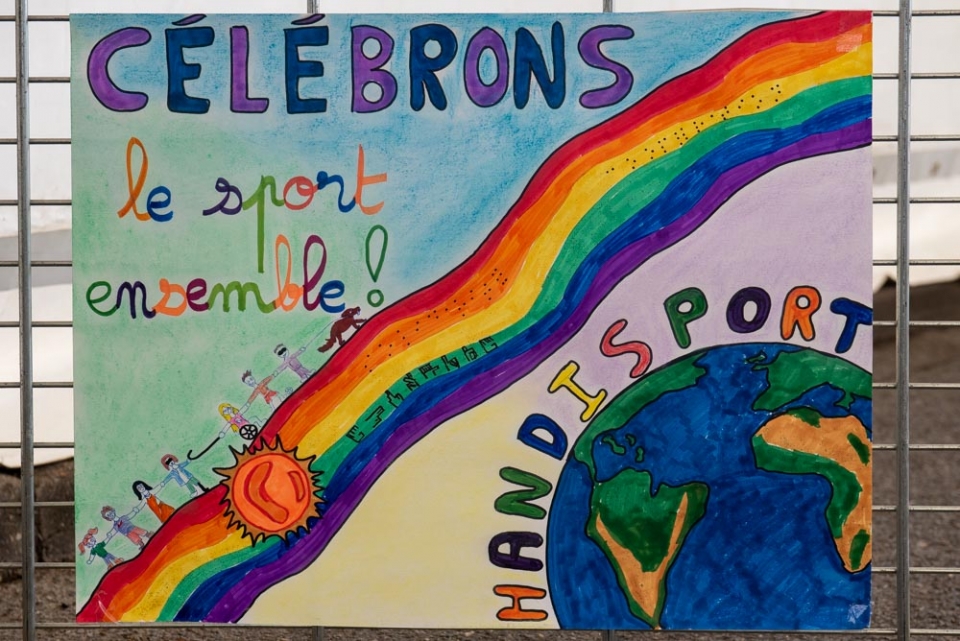 CÉLÉBRONS
le sport
ensemble !
HANDISPORT